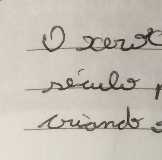 O xerox
século
criando